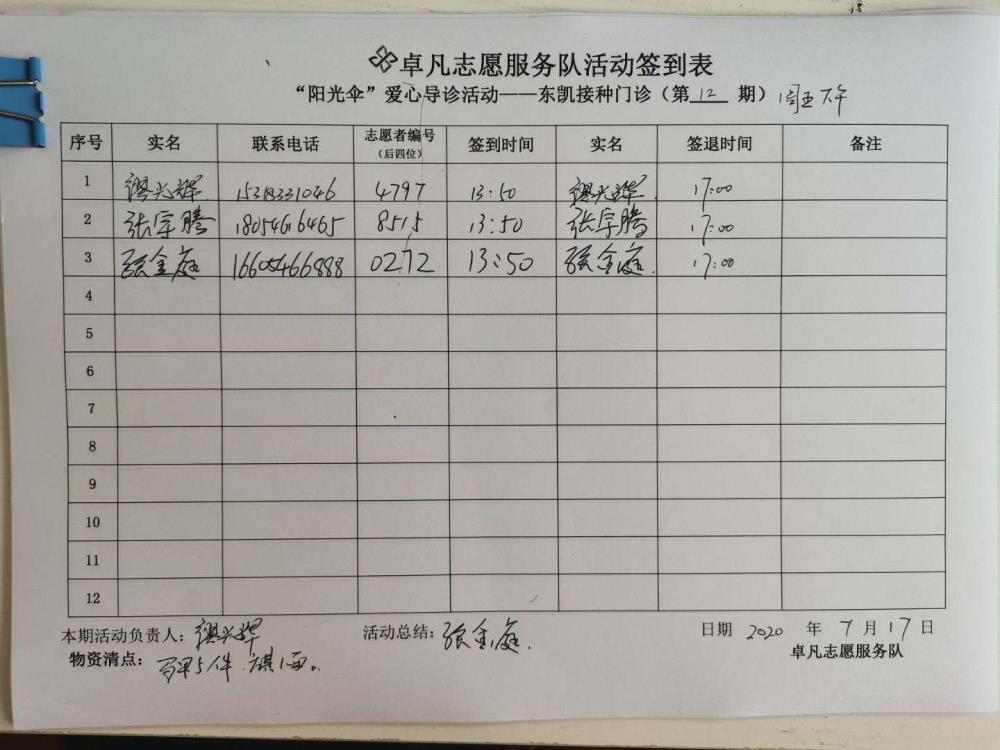 卓凡志愿服务队活动签到表
“阳光伞”爱心导诊活动——东凯接种门诊（第 12 期）周五下午
序号 实名 联系电话 志愿者编号（后四位） 签到时间 实名 签退时间 备注
1 光辉 15318331046 4797 13:50 光辉 17:00
2 张宇腾 18054616465 8515 13:50 张宇腾 17:00
3 张金庭 16605466888 0272 13:50 张金庭. 17:00
4
5
6
7
8
9
10
11
12
本期活动负责人：光辉 活动总结：张金庭. 日期 2020 年 7 月 17 日
物资清点：马甲5件.旗1面。 卓凡志愿服务队